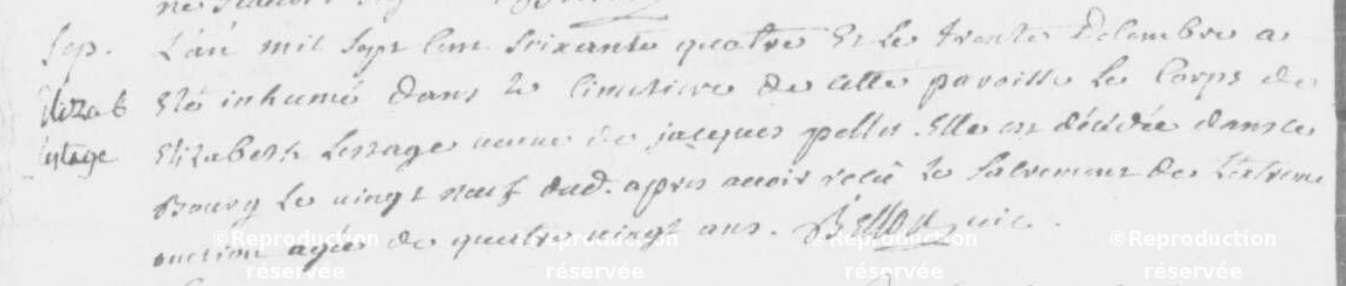 Sep.
Elizab
Lesage
L'an mil sept cent soixante quatre et le trente decembre a
été inhumé dans le cimetiere de cette paroisse le corps de
Elizabeth Lesage veuve de jacques pelles. Elle est décédée dans le
Bourg le vingt neuf dud. apres avoir reçu le sacrement de l'extreme
onction agée de quatre vingt ans. vic.
©Reproduction réservée
©Reproduction réservée
©Reproduction réservée
©Reproduction réservée